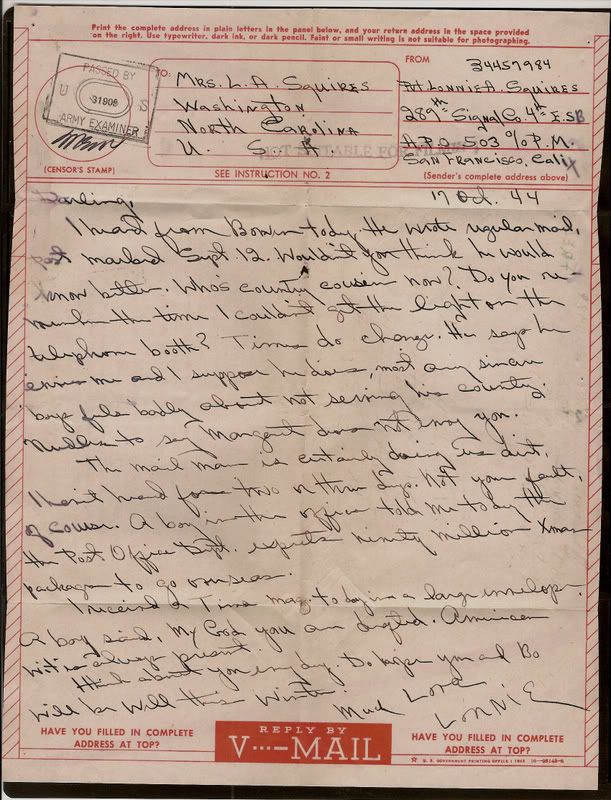 Print the complete address in plain letters in the panel below, and your return address in the space provided
on the right. Use typewriter, dark ink, or dark pencil. Faint or small writing is not suitable for photographing.
PASSED BY
U S
31908
ARMY EXAMINER
(CENSOR'S STAMP)
TO:
MRS. L. A. SQUIRES
WASHINGTON
NORTH CAROLINA
U. S. A.
SEE INSTRUCTION NO. 2
FROM
34457984
Pvt LONNIE A. SQUIRES
289th Signal Co. 4th E.S.B
A.P.O. 503 % P.M.
SAN FRANCISCO, Calif
(Sender's complete address above)
17 Oct. 44
Darling,
I heard from Bowen today. He wrote regular mail,
mailed Sept. 12. Wouldn't you think he would
know better. Whos country cousin now? Do you re-
member the time I couldn't get the light on the
telephone booth? Times do change. He says he
envies me and I suppose he does, most any sincere
boys feels badly about not serving his country.
Needless to say Margaret does not envy you.
The mail man is certainly doing us dirt,
I havent heard for two or three days. Not your fault,
of course. A boy in the office told me today
the Post Office Dept. expects ninety million Xmas
packages to go overseas.
I received a Time mag. today in a large envelope.
A boy said, My God you am drafted. American
wit is always present.
Think about you every day. Do hope you and Bo
will be well this Winter.
Much Love
LONNIE
HAVE YOU FILLED IN COMPLETE
ADDRESS AT TOP?
REPLY BY
V···—MAIL
HAVE YOU FILLED IN COMPLETE
ADDRESS AT TOP?
U. S. GOVERNMENT PRINTING OFFICE : 1943